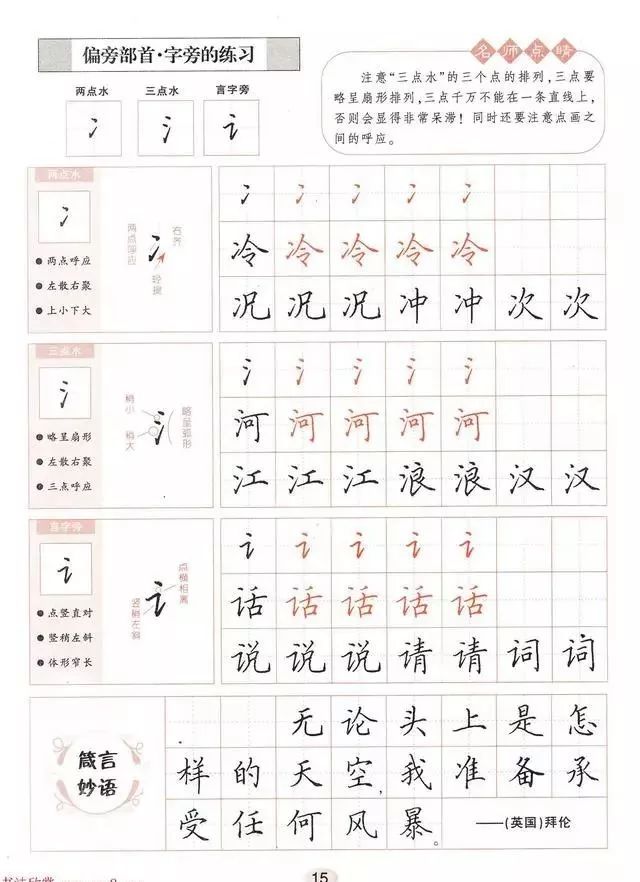 偏旁部首·字旁的练习
名师点睛
注意“三点水”的三个点的排列,三点要
略呈扇形排列,三点千万不能在一条直线上,
否则会显得非常呆滞!同时还要注意点画之
间的呼应。
两点水 三点水 言字旁
冫 氵 讠
两点水
冫
两点呼应
左散右聚
上小下大
两点呼应
冫
右齐
轻提
冫 冫 冫 冫 冫
冷 冷 冷 冷 冷
况 况 况 冲 冲 次 次
三点水
氵
略呈扇形
左散右聚
三点呼应
稍小
稍大
氵
略呈弧形
氵 氵 氵 氵 氵
河 河 河 河 河
江 江 江 浪 浪 汉 汉
言字旁
讠
点竖直对
竖稍左斜
体形窄长
点横相离
讠
竖稍左斜
讠 讠 讠 讠 讠
话 话 话 话 话
说 说 说 请 请 词 词
箴言
妙语
无论头上是怎
样的天空,我准备承
受任何风暴。
——(英国)拜伦
15